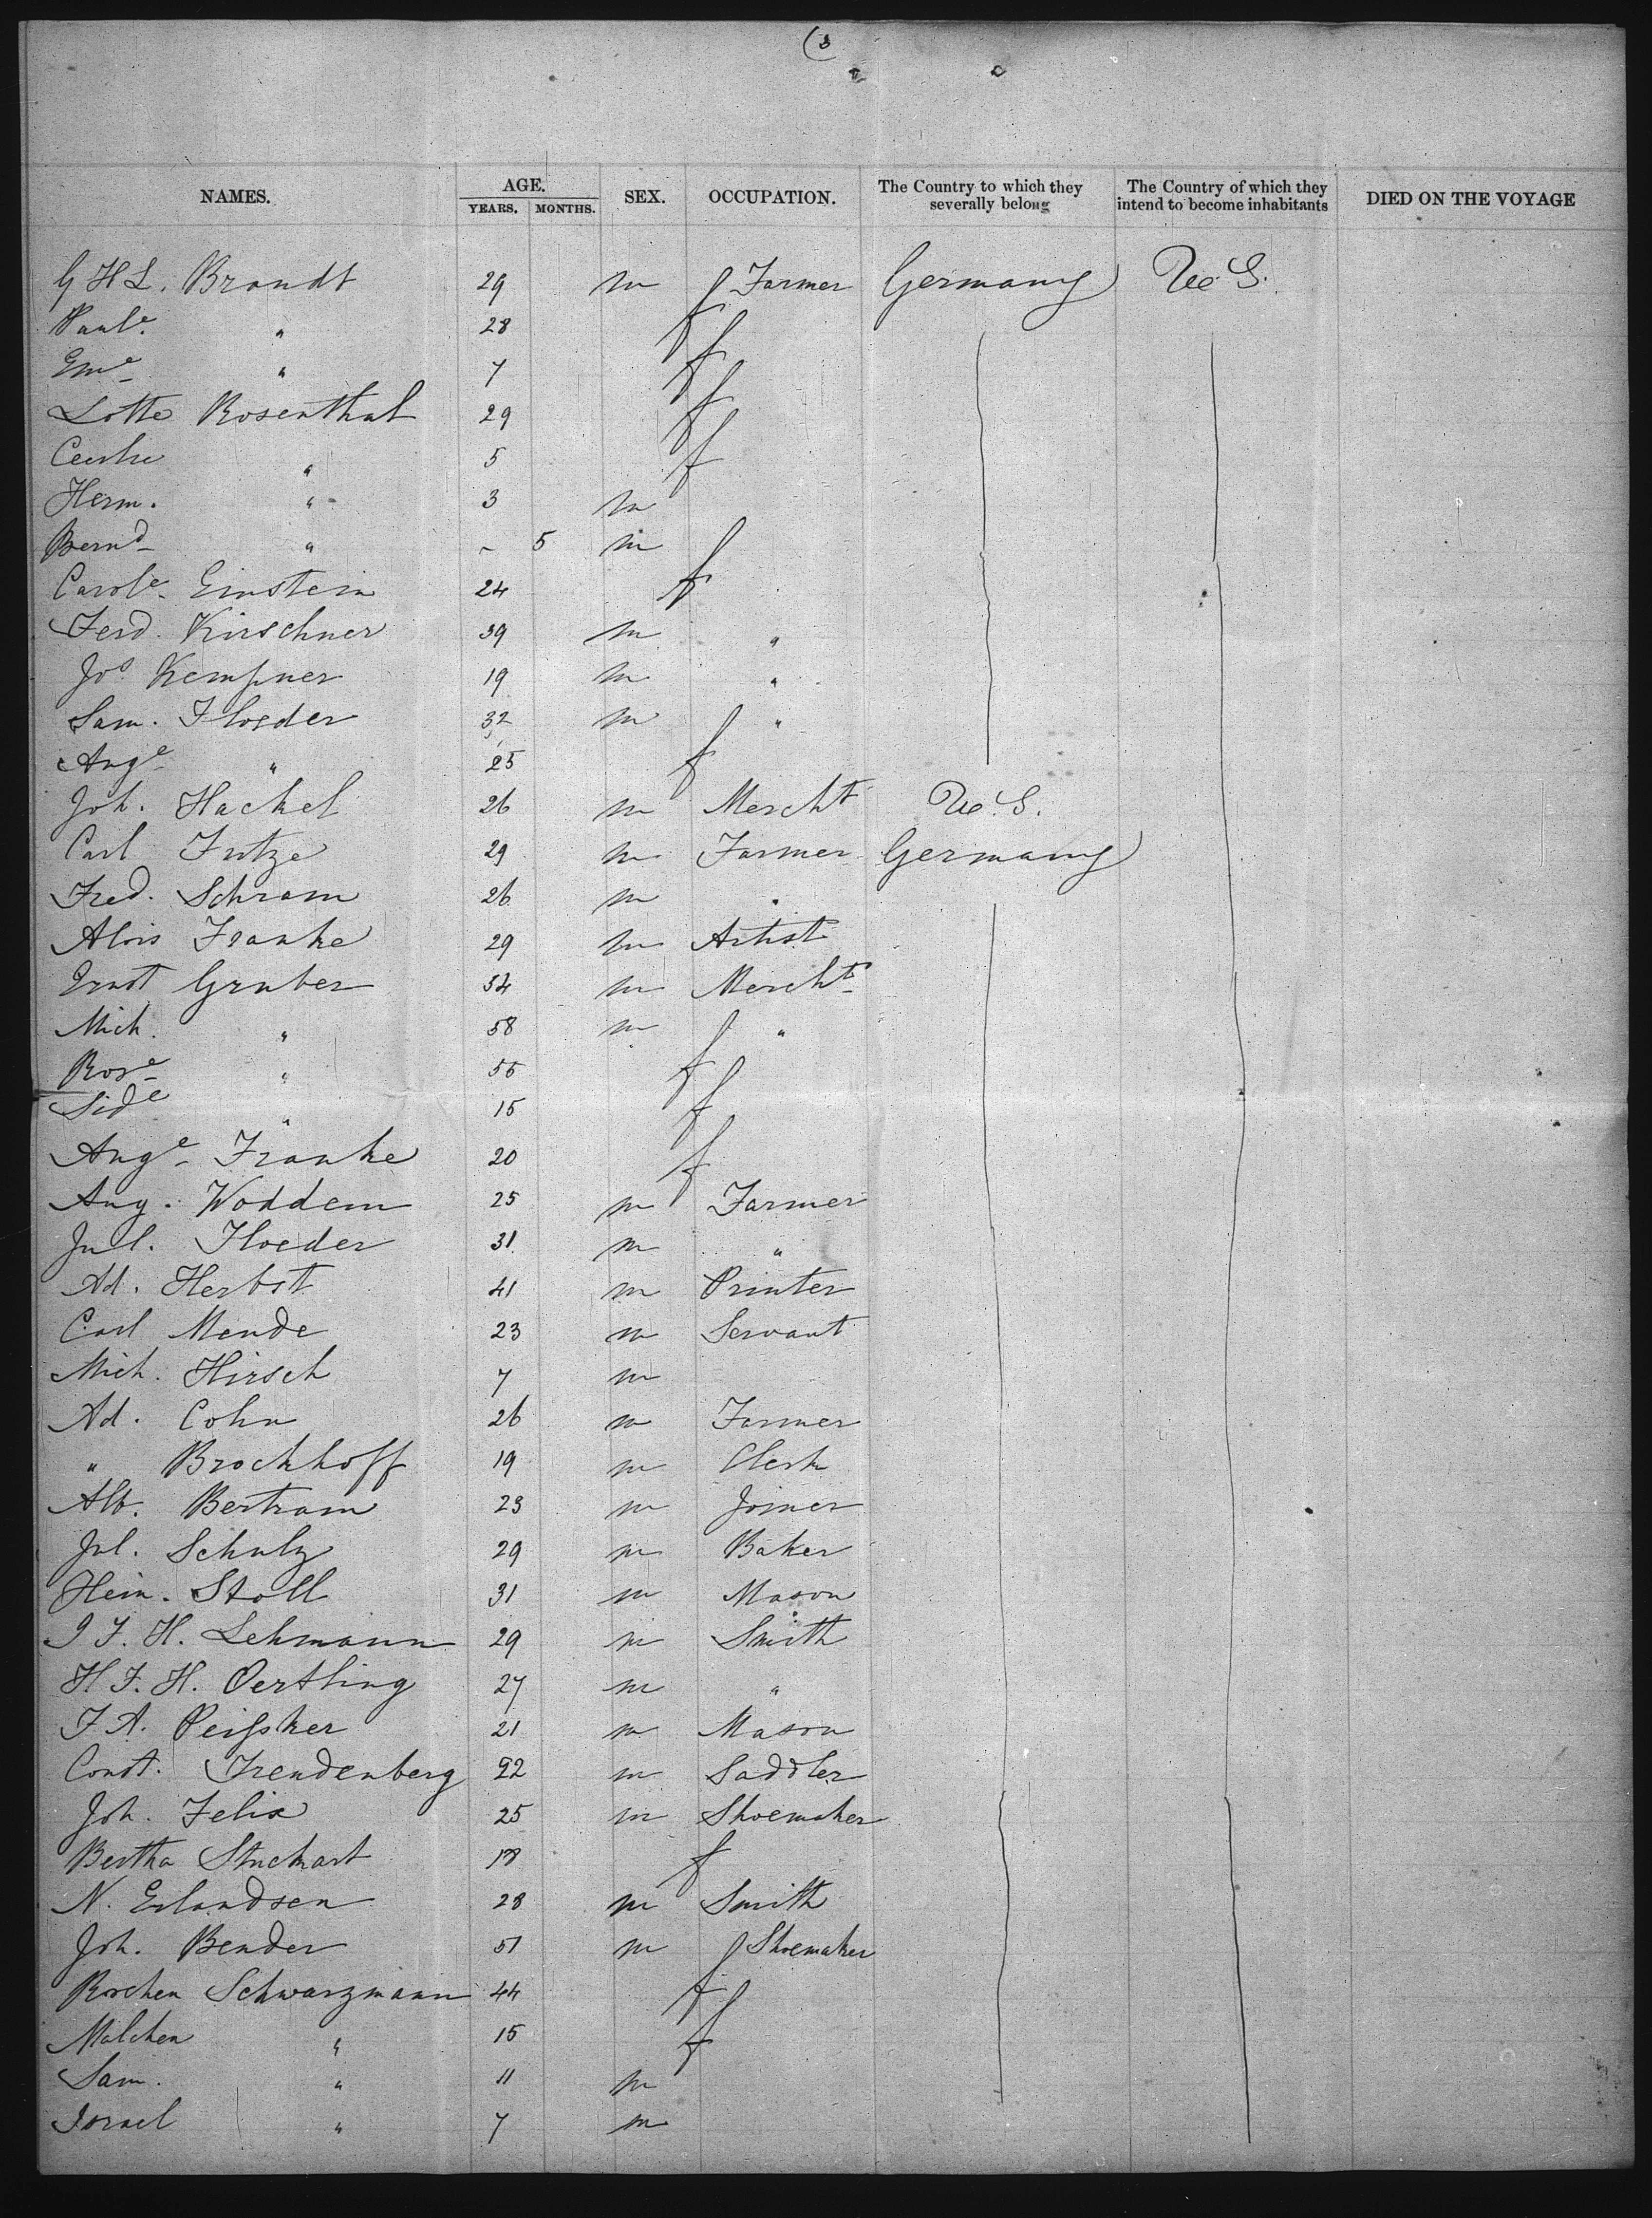 (3
NAMES. AGE. YEARS. MONTHS. SEX. OCCUPATION. The Country to which they severally belong The Country of which they intend to become inhabitants DIED ON THE VOYAGE
G H L. Brandt 29 m Farmer Germany U.S.
Paule. " 28 f
Eme " 7 f
Lotte Rosenthal 29 f
5 f
Herm. " 3 m
Bernd " - 5 m
Carole. Einstein 24 f
Ferd. Kirschner 39 m "
Jos Kempner 19 m "
Sam. Floeder 32 m "
Auge " 25 f
Joh. Hackel 26 m Mercht U.S.
Carl Fritze 29 m Farmer Germany
Fred. Schram 26 m "
Alois Franke 29 m Artist
Ernst Gruber 54 m Mercht
Mich. " 58 m "
Rose " 56 f
Side " 15 f
Auge Franke 20 f
Aug. Woddem 25 m Farmer
Jul. Floeder 31 m "
Ad. Herbst 41 m Printer
Carl Mende 23 m Servant
Mich. Hirsch 7 m
Ad. Cohn 26 m Farmer
" Brockhoff 19 m Clerk
Alb. Bertram 23 m Joiner
Jul. Schulz 29 m Baker
Hein. Stoll 31 m Mason
J F. H. Lehmann 29 m Smith
H. F. H. Oertling 27 m "
F A. Peifsker 21 m Mason
Const. Freudenberg 22 m Saddler
Joh. Felix 25 m Shoemaker
Bertha Stuckart 18 f
N. Erlandsen 28 m Smith
Joh. Bender 51 m Shoemaker
Roschen Schwarzmann 44 f
Malchen " 15 f
Sam. " 11 m
Israel " 7 m